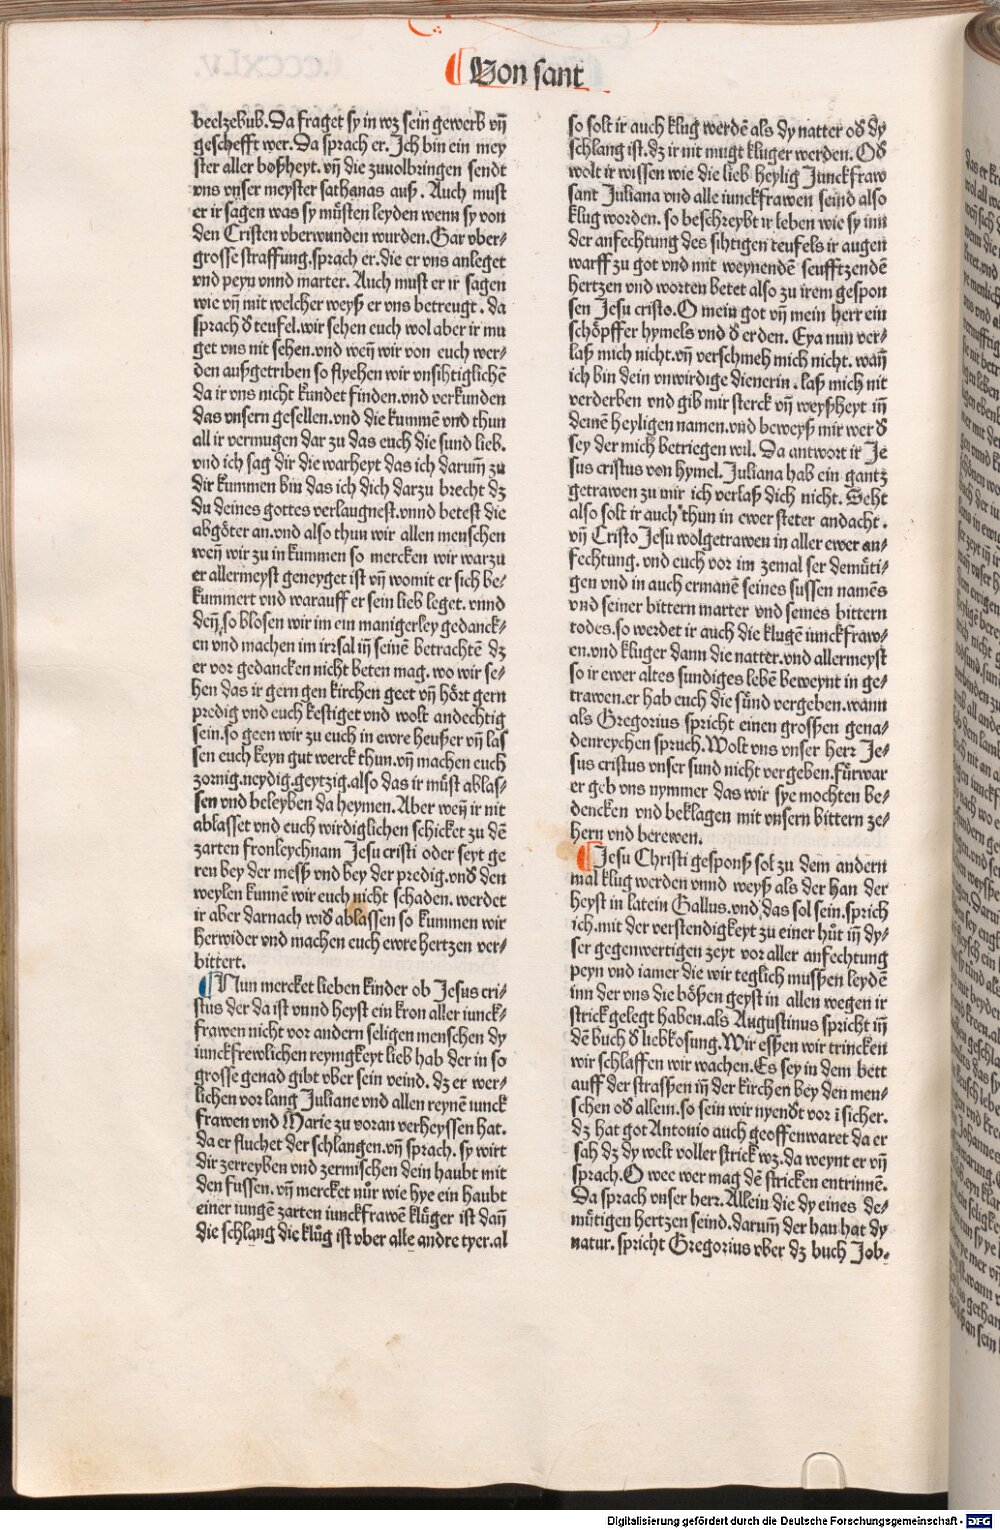 Von sant
beelzebub. Da fraget sy in wz sein gewerb vñ
geschefft wer. Da sprach er. Ich bin ein mey
ster aller boßheyt. vñ die zuuolbringen sendt
vns vnser meyster sathanas auß. Auch must
er ir sagen was sy müsten leyden wenn sy von
den Cristen vberwunden wurden. Gar vber-
grosse straffung. sprach er. die er vns anleget
vnd peyn vnnd marter. Auch must er ir sagen
wie vñ mit welcher weyß er vns betreugt. da
sprach d̕ teufel. wir sehen euch wol aber ir mu
get vns nit sehen. vnd weñ wir von euch wer-
den außgetriben so flyehen wir vnsihtiglichē
da ir vns nicht kundet finden. vnd verkunden
das vnsern gesellen. vnd die kummē vnd thun
all ir vermugen dar zu das euch die sund lieb.
vnd ich sag dir die warheyt das ich daruñ zu
dir kummen bin das ich dich darzu brecht dz
du deines gottes verlaugnest. vnnd betest die
abgöter an. vnd also thun wir allen menschen
weñ wir zu in kummen so mercken wir warzu
er allermeyst geneyget ist vñ womit er sich be-
kummert vnd warauff er sein lieb leget. vnnd
deñ so blosen wir im ein manigerley gedanck-
en vnd machen im irrsal iñ seinē betrachtē dz
er vor gedancken nicht beten mag. wo wir se-
hen das ir gern gen kirchen geet vñ hört gern
predig vnd euch kestiget vnd wolt andechtig
sein. so geen wir zu euch in ewre heußer vñ las
sen euch keyn gut werck thun. vñ machen euch
zornig. neydig. geytzig. also das ir müst ablas-
sen vnd beleyben da heymen. Aber weñ ir nit
ablasset vnd euch wirdiglichen schicket zu dē
zarten fronleychnam Jesu cristi oder seyt ge
ren bey der meß vnd bey der predig. vnd̕ den
weylen kunnē wir euch nicht schaden. werdet
ir aber darnach wid̕ ablassen so kummen wir
herwider vnd machen euch ewre hertzen ver-
bittert.
Nun mercket lieben kinder ob Jesus cri-
stus der da ist vnnd heyst ein kron aller iunck-
frawen nicht vor andern seligen menschen dy
iunckfrewlichen reynigkeyt lieb hab der in so
grosse genad gibt vber sein veind. dz er wer-
lichen vor lang Juliane vnd allen reynē iunck
frawen vnd Marie zu voran verheyssen hat.
da er fluchet der schlangen. vñ sprach. sy wirt
dir zerreyben vnd zermischen dein haubt mit
den fussen. vñ mercket nůr wie hye ein haubt
einer iungē zarten iunckfrawē klüger ist dañ
die schlang die klůg ist vber alle andre tyer. al
so solt ir auch klug werdē als dy natter od̕ dy
schlang ist. dz ir nit mugt kluger werden. Od̕
wolt ir wissen wie die lieb heylig Junckfraw
sant Juliana vnd alle iunckfrawen seind also
klug worden. so beschreybt ir leben wie sy inn
der anfechtung des sihtigen teufels ir augen
warff zu got vnd mit weynendē seufftzendē
hertzen vnd worten betet also zu irem gespon
sen Jesu cristo. O mein got vñ mein herr ein
schöpffer hymels vnd d̕ erden. Eya nun ver-
laß mich nicht. vñ verschmeh mich nicht. wañ
ich bin dein vnwirdige dienerin. laß mich nit
verderben vnd gib mir sterck vñ weyßheyt iñ
deinē heyligen namen. vnd beweyß mir wer d̕
sey der mich betriegen wil. Da antwort ir Je
sus cristus von hymel. Juliana hab ein gantz
getrawen zu mir ich verlaß dich nicht. Seht
also solt ir auch thun in ewer steter andacht.
vñ Cristo Jesu wolgetrawen in aller ewer an-
fechtung. vnd euch vor im zemal ser demüti-
gen vnd in auch ermanē seines sussen namēs
vnd seiner bittern marter vnd seines bittern
todes. so werdet ir auch die klugē iunckfraw-
en. vnd kluger dann die natter. vnd allermeyst
so ir ewer altes sundiges lebē beweynt in ge-
trawen. er hab euch die sünd vergeben. wann
als Gregorius spricht einen grossen gena-
denreychen spruch. Wolt vns vnser herr Je-
sus cristus vnser sund nicht vergeben. fürwar
er geb vns nymmer das wir sye mochten be-
dencken vnd beklagen mit vnsern bittern ze-
hern vnd berewen.
Jesu Christi gesponß sol zu dem andern
mal klug werden vnnd weyß als der han der
heyst in latein Gallus. vnd das sol sein. sprich
ich. mit der verstendigkeyt zu einer hůt iñ dy-
ser gegenwertigen zeyt vor aller anfechtung
peyn vnd iamer die wir teglich mußen leydē
inn der vns die bößen geyst in allen wegen ir
strick gelegt haben. als Augustinus spricht iñ
dē buch d̕ liebkosung. Wir eßen wir trincken
wir schlaffen wir wachen. Es sey in dem bett
auff der straßen iñ der kirchen bey den men-
schen od̕ allein. so sein wir nyendt vor ī sicher.
dz hat got Antonio auch geoffenwaret da er
sah dz dy welt voller strick wz. da weynt er vñ
sprach. O wee wer mag dē stricken entrinnē.
Da sprach vnser herr. Allein die dy eines de-
mütigen hertzen seind. daruñ der han hat dy
natur. spricht Gregorius vber dz buch Job.
Digitalisierung gefördert durch die Deutsche Forschungsgemeinschaft - DFG